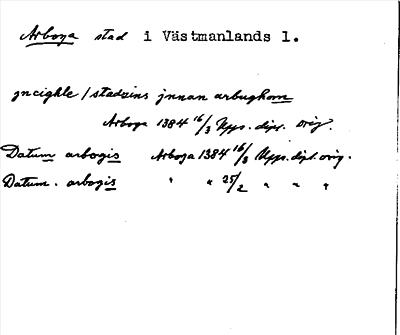 Arboga stad i Västmanlands l.
jncighle / stadzins jnnan arbughom
Arboga 1384 16/3 Upps. dipl. orig.
Datum arbogis Arboga 1384 16/3 Upps. dipl. orig.
Datum . arbogis " " 25/2 " " "